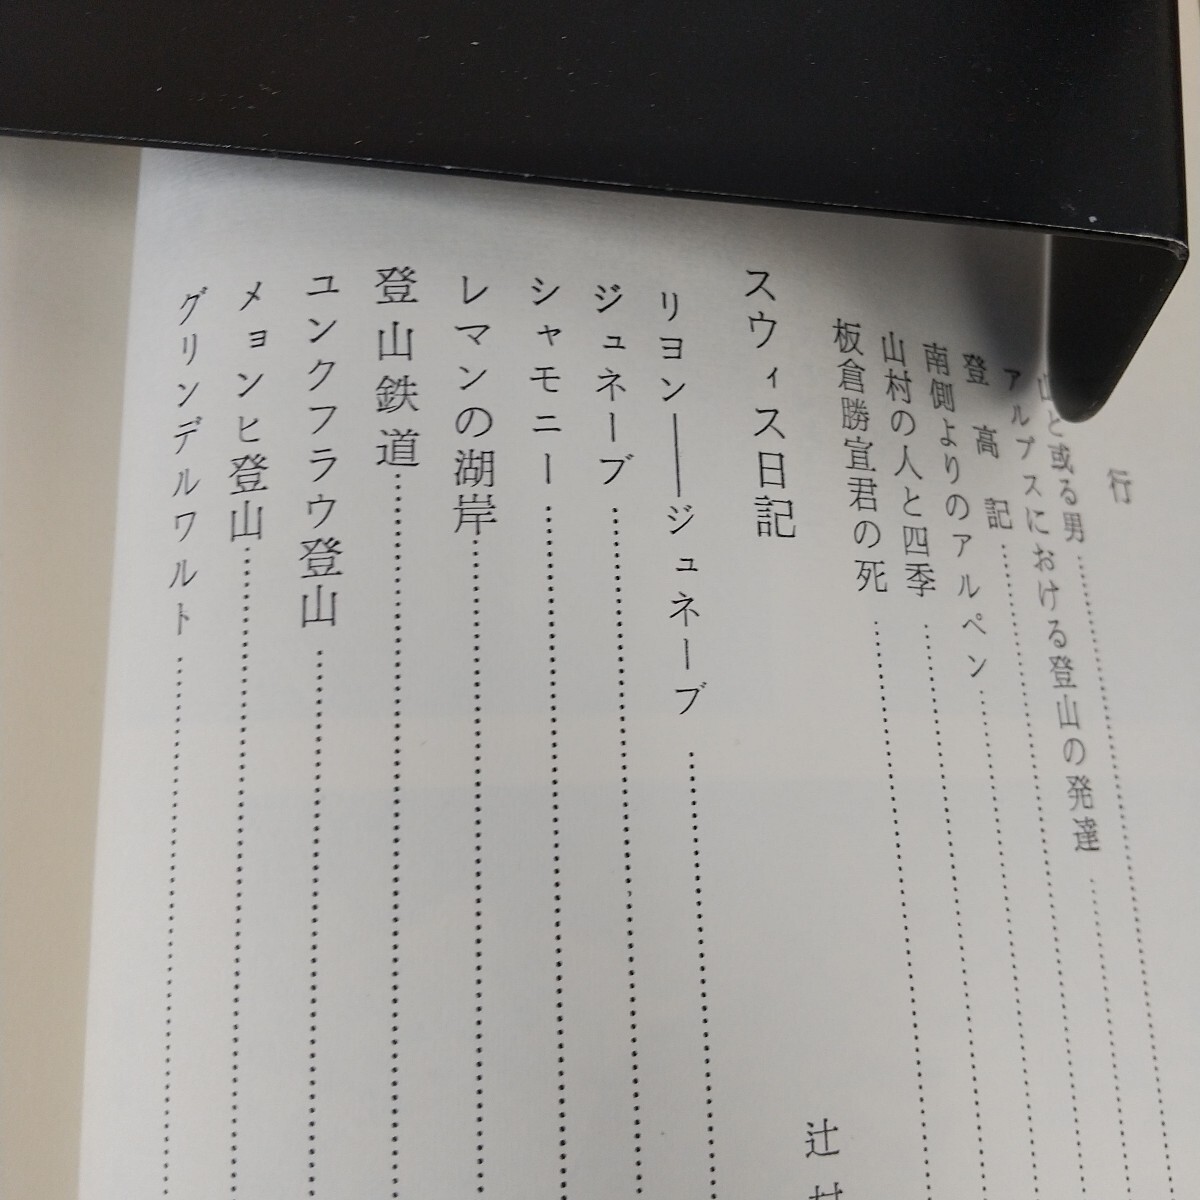 行
山と或る男
アルプスにおける登山の発達
登高記
南側よりのアルペン
山村の人と四季
板倉勝宣君の死
スウィス日記
辻村
リヨン――ジュネーブ
ジュネーブ
シャモニー
レマンの湖岸
登山鉄道
ユンクフラウ登山
メョンヒ登山
グリンデルワルト